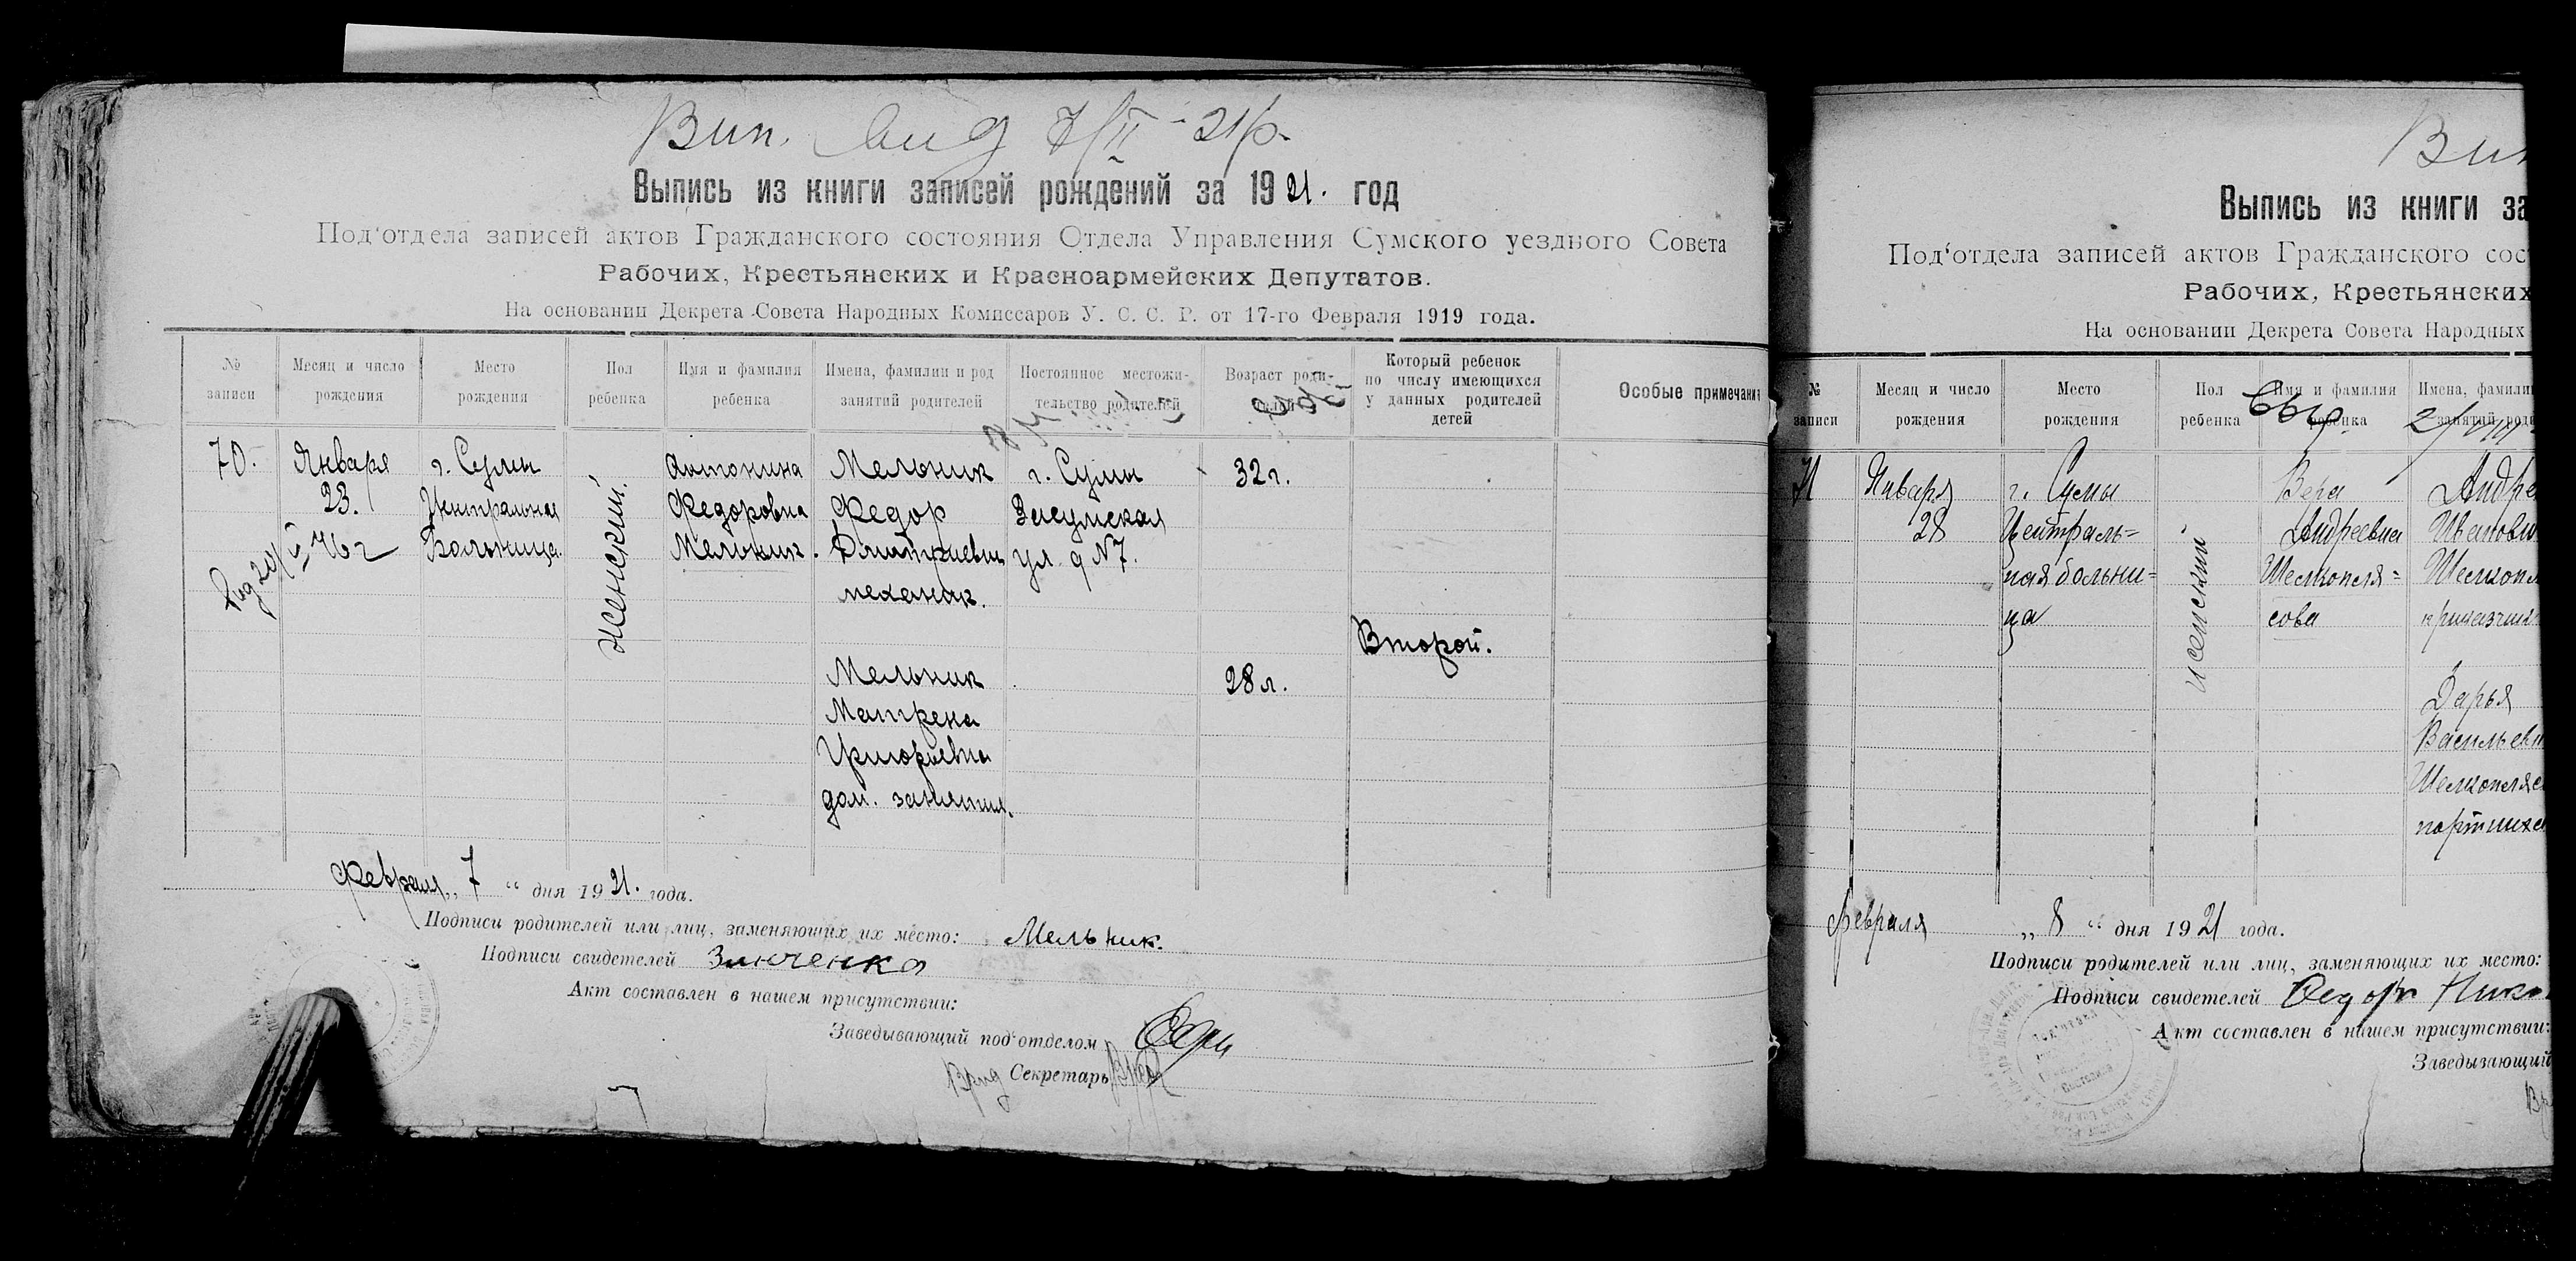 Вип. 7/II - 21 р.
Выпись из книги записей рождений за 1921. год
Под'отдела записей актов Гражданского состояния Отдела Управления Сумского уездного Совета
Рабочих, Крестьянских и Красноармейских Депутатов.
На основании Декрета Совета Народных Комиссаров У. С. С. Р. от 17-го Февраля 1919 года.
№ записи
Месяц и число рождения
Место рождения
Пол ребенка
Имя и фамилия ребенка
Имена, фамилии и род занятий родителей
Постоянное местожительство родителей
Возраст родителей
Который ребенок по числу имеющихся у данных родителей детей
Особые примечания
70.
Января
23.
г. Сумы
Центральная
Больница.
женский.
Антонина
Федоровна
Мельник.
Мельник
Федор
Дмитриевич
механик.
г. Сумы
Засумская
ул. д №7.
32 г.
Второй.
Мельник
Матрена
Григорьевна
дом. занятия.
28 л.
Февраля „ 7 “ дня 1921. года.
Подписи родителей или лиц, заменяющих их место: Мельник.
Подписи свидетелей Зинченко
Акт составлен в нашем присутствии:
Заведывающий под'отделом
Врид Секретарь
Вип
Выпись из книги за
Под'отдела записей актов Гражданского сос
Рабочих, Крестьянских
На основании Декрета Совета Народных
№ записи
Месяц и число рождения
Место рождения
Пол ребенка
Имя и фамилия ребенка
Имена, фамилии
занятий роди
71
Января
28
г. Сумы
Централь=
ная больни=
ца
женский
Вера
Андреевна
Шелкопля=
сова
Андре
Иванови
Шелкопл
приказчик
Дарья
Васильевн
Шелкопляс
портниха
февраля „ 8 “ дня 1921 года.
Подписи родителей или лиц, заменяющих их место:
Подписи свидетелей Федор Нико
Акт составлен в нашем присутствии:
Заведывающий
Вр